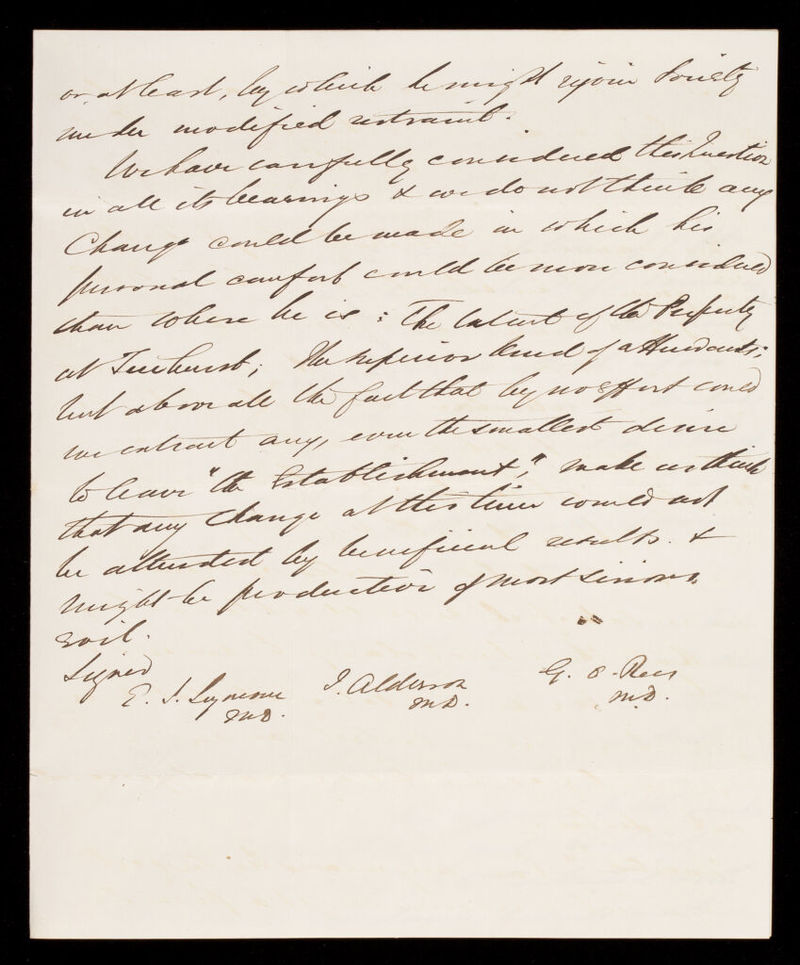 or, at least, by which he might rejoin Society
under modified restraint.
We have carefully considered this Question
in all its bearings & we do not think any
Change could be made in which his
personal comfort could be more considered
than where he is: The Extent of the Property
at Ticehurst; the superior kind of attendants;
but above all the fact that by no effort could
we extract any, even the smallest desire
to leave "the Establishment", make us think
that any change at this time would not
be attended by beneficial results. &
might be productive of most serious
evil.
Signed
E. J. Seymour J. Alderson G. O. Rees
M.D. M.D. M.D.